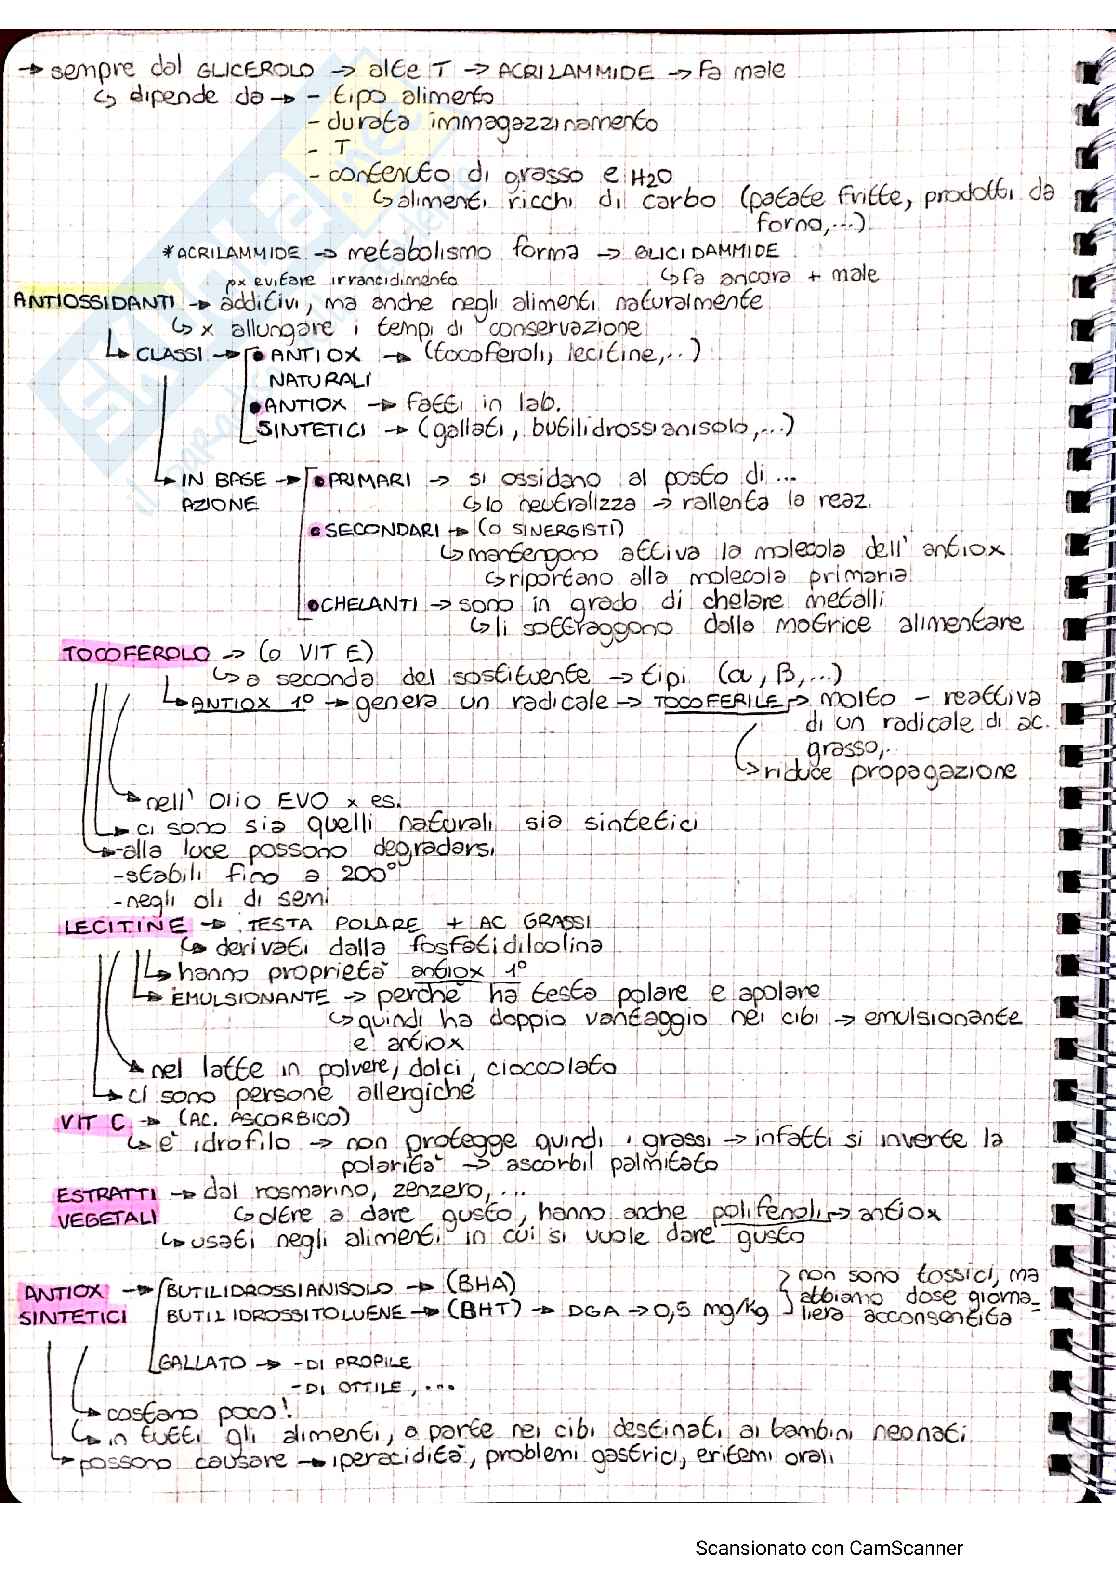 → sempre dal GLICEROLO → alte T → ACRILAMMIDE → fa male
↳ dipende da → - tipo alimento
- durata immagazzinamento
- T
- contenuto di grasso e H2O
↳ alimenti ricchi di carbo (patate fritte, prodotti da
forno,...)
*ACRILAMMIDE → metabolismo forma → GLICIDAMMIDE
px evitare irrancidimento ↳ fa ancora + male
ANTIOSSIDANTI → additivi, ma anche negli alimenti naturalmente
↳ x allungare i tempi di conservazione
↳ CLASSI → • ANTIOX → (tocoferoli, lecitine,..)
NATURALI
• ANTIOX → fatti in lab.
SINTETICI → (gallati, butilidrossianisolo,...)
↳ IN BASE → • PRIMARI → si ossidano al posto di ...
AZIONE ↳ lo neutralizza → rallenta la reaz.
• SECONDARI → (o SINERGISTI)
↳ mantengono attiva la molecola dell' antiox
↳ riportano alla molecola primaria
• CHELANTI → sono in grado di chelare metalli
↳ li sottraggono dalla matrice alimentare
TOCOFEROLO → (o VIT E)
↳ a seconda del sostituente → tipi (α, β,...)
↳ ANTIOX 1° → genera un radicale → TOCOFERILE → molto - reattiva
di un radicale di ac.
grasso,.
↳ riduce propagazione
→ nell' olio EVO x es.
→ ci sono sia quelli naturali sia sintetici
→ -alla luce possono degradarsi
-stabili fino a 200°
-negli oli di semi
LECITINE → TESTA POLARE + AC GRASSI
↳ derivati dalla fosfatidilcolina
↳ hanno proprietà antiox 1°
↳ EMULSIONANTE → perchè ha testa polare e apolare
↳ quindi ha doppio vantaggio nei cibi → emulsionante
e antiox
→ nel latte in polvere, dolci, cioccolato
→ ci sono persone allergiche
VIT C → (AC. ASCORBICO)
↳ è idrofilo → non protegge quindi i grassi → infatti si inverte la
polarità → ascorbil palmitato
ESTRATTI → dal rosmarino, zenzero,...
VEGETALI ↳ oltre a dare gusto, hanno anche polifenoli → antiox
↳ usati negli alimenti in cui si vuole dare gusto
ANTIOX → BUTILIDROSSIANISOLO → (BHA) non sono tossici, ma
SINTETICI BUTILIDROSSITOLUENE → (BHT) → DGA → 0,5 mg/kg abbiamo dose giorna-
liera acconsentita
GALLATO → - DI PROPILE
- DI OTTILE, ...
↳ costano poco!
↳ in tutti gli alimenti, a parte nei cibi destinati ai bambini neonati
→ possono causare → iperacidità, problemi gastrici, eritemi orali
Scansionato con CamScanner